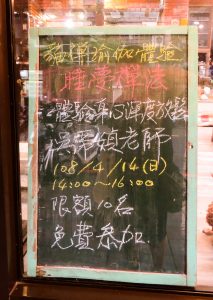 瑜伽體驗
睡夢禪法
體驗專心深度放鬆
老師
108/4/14(日)
14:00~16:00
限額10名
免費參加